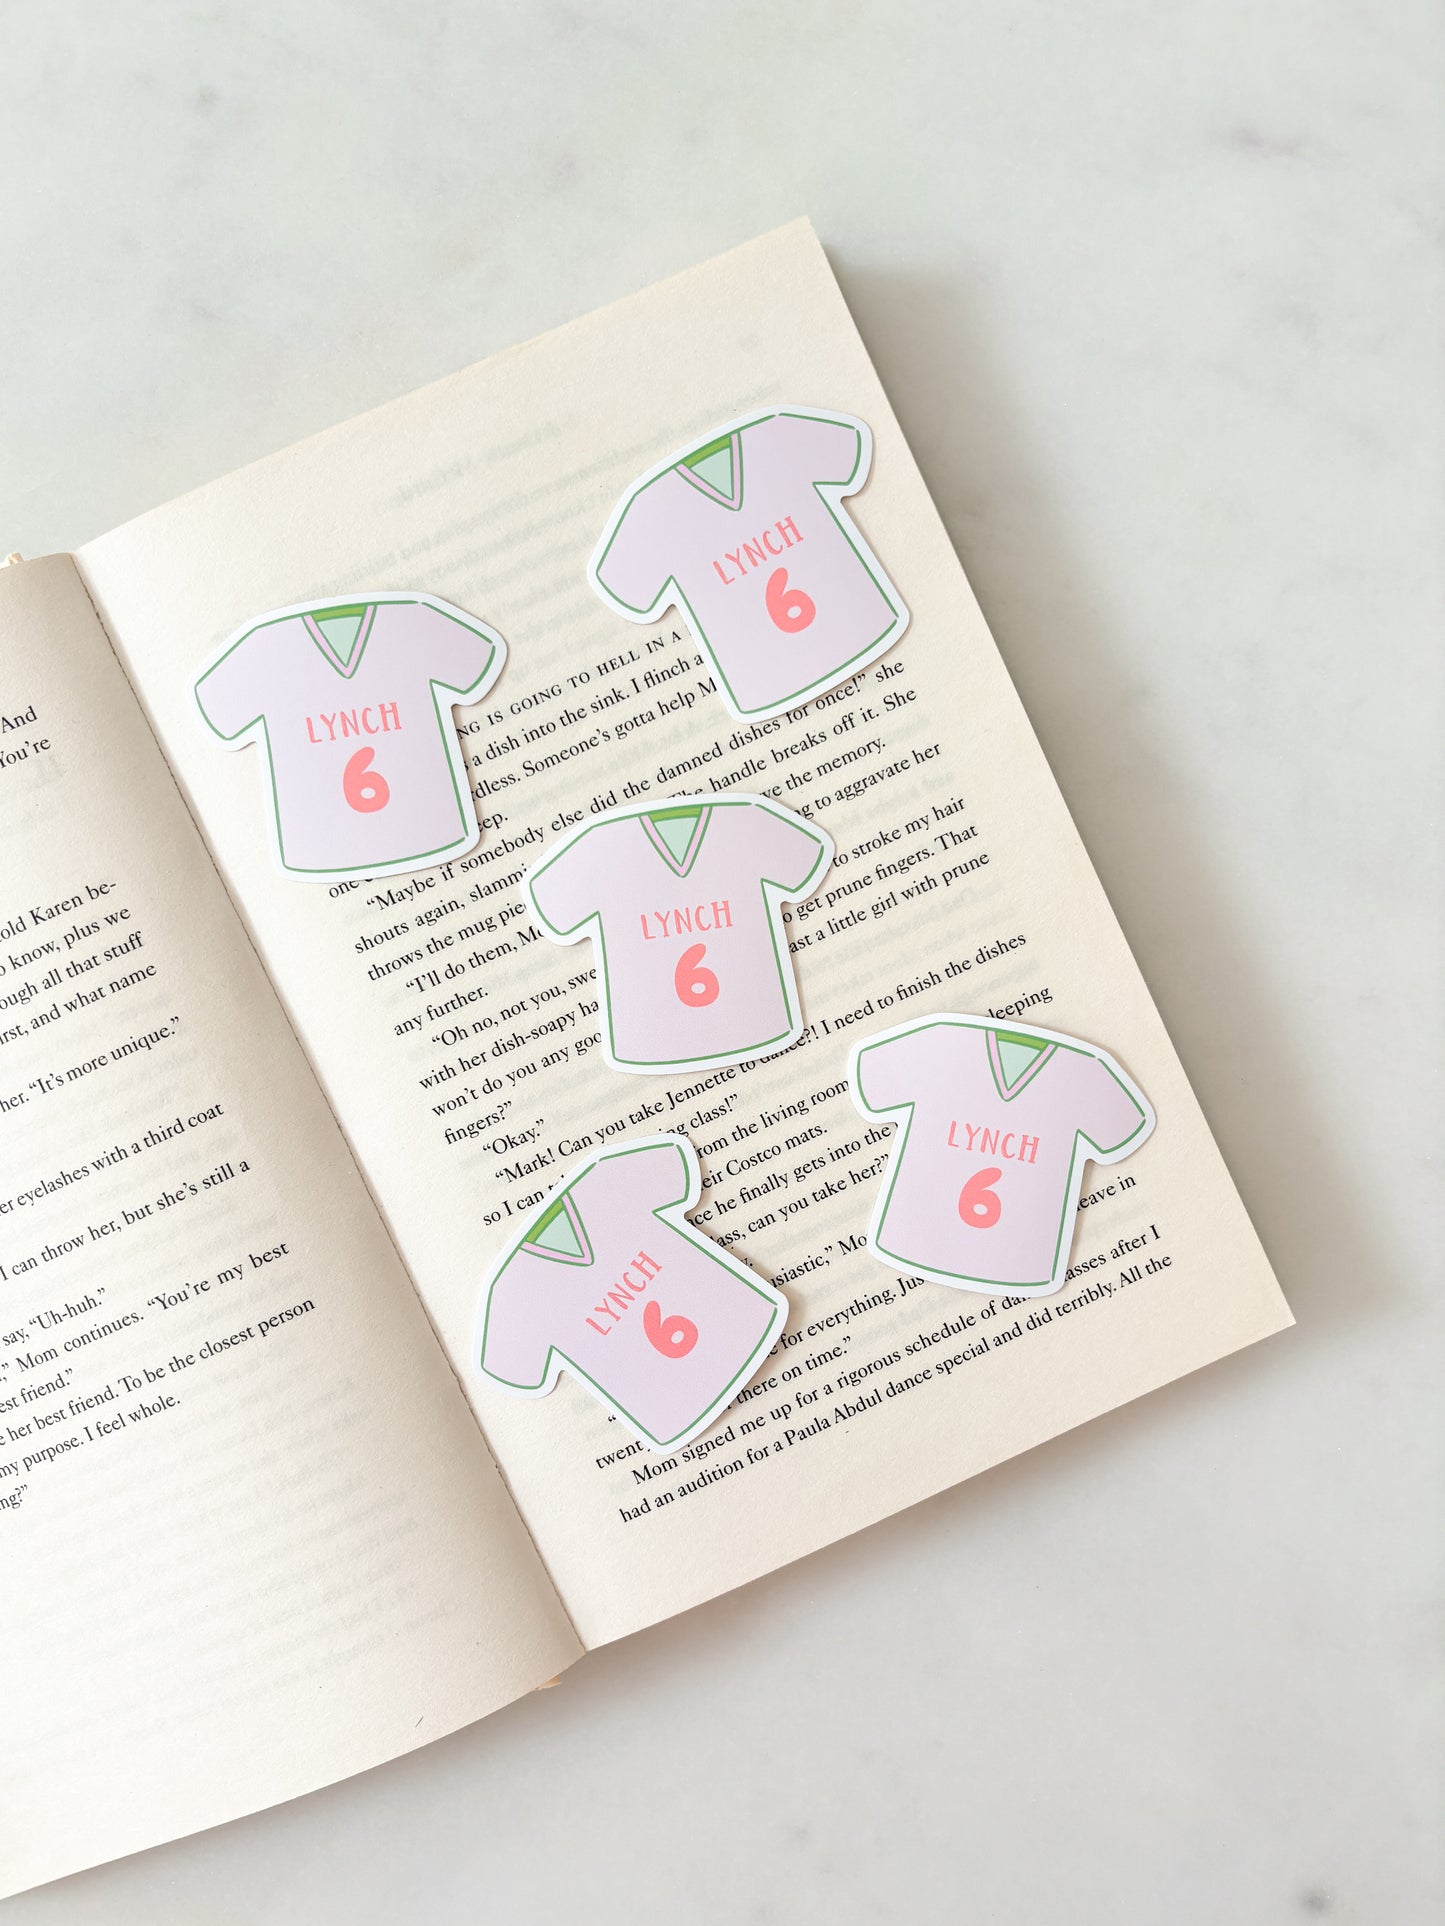 And
You're
told Karen be-
o know, plus we
ough all that stuff
irst, and what name
her. “It's more unique.”
er eyelashes with a third coat
I can throw her, but she's still a
say, “Uh-huh.”
,” Mom continues. “You're my best
est friend.”
e her best friend. To be the closest person
my purpose. I feel whole.
ing?”
LYNCH
6
LYNCH
6
LYNCH
6
LYNCH
6
LYNCH
6
NG IS GOING TO HELL IN A
a dish into the sink. I flinch a
rdless. Someone's gotta help M
eep.
one
“Maybe if somebody else did the damned dishes for once!” she
shouts again, slammi The handle breaks off it. She
throws the mug pie ve the memory.
“I'll do them, Mo ng to aggravate her
any further.
“Oh no, not you, swe to stroke my hair
with her dish-soapy ha o get prune fingers. That
won't do you any goo ast a little girl with prune
fingers?”
“Okay.”
“Mark! Can you take Jennette to dance?! I need to finish the dishes
so I can ng class!” leeping
from the living room
eir Costco mats.
nce he finally gets into the
lass, can you take her?”
usiastic,” Mo leave in
e for everything. Jus
“ there on time.”
twent
Mom signed me up for a rigorous schedule of dance classes after I
had an audition for a Paula Abdul dance special and did terribly. All the